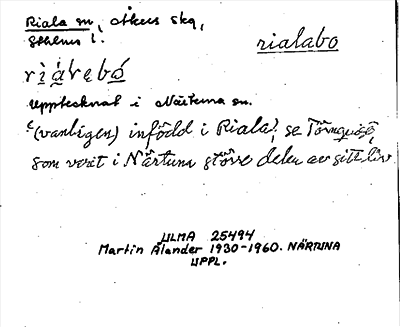 Riala sn, Åkers skg,
Sthlms l.
rialabo
riạ́lebó
Upptecknat i Närtuna sn.
"(vanligen) infödd i Riala", se Törnquist,
som varit i Närtuna större delen av sitt liv.
ULMA 25494
Martin Ålander 1930-1960. NÄRTUNA
UPPL.